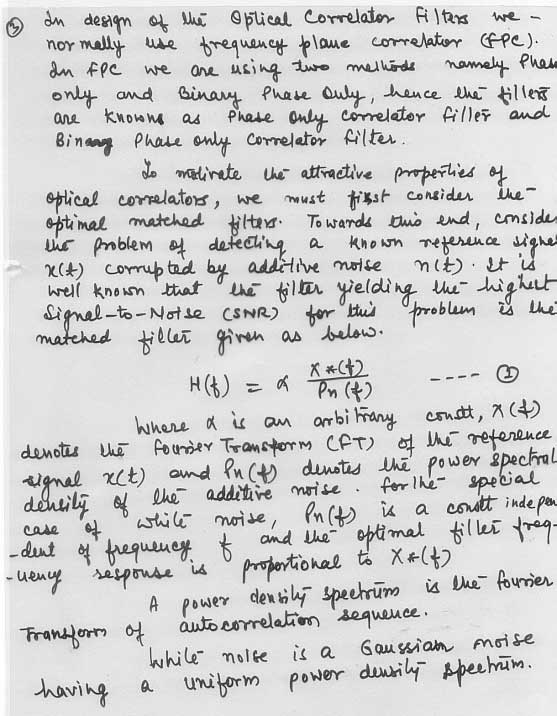 ③ In design of the Optical Correlator Filters we -
normally use frequency plane correlator (FPC).
In FPC we are using two methods namely Phase
only and Binary Phase Only, hence the filters
are Knowns as Phase Only Correlator Filler and
Binary Phase only Correlator Filter.
To motivate the attractive properties of
optical correlators, we must first consider the
optimal matched filters. Towards this end, consider
the problem of detecting a known reference signal
x(t) corrupted by additive noise n(t). It is
well known that the filter yielding the highest
Signal-to-Noise (SNR) for this problem is the
matched filter given as below.
H(f) = α X*(f) / Pn(f) ---- ①
Where α is an arbitrary constt, X(f)
denotes the fourier Transform (FT) of the reference
signal x(t) and Pn(f) denotes the power spectral
density of the additive noise. For the special
case of white noise, Pn(f) is a constt indepen
-dent of frequency f and the optimal filter freq-
-uency response is proportional to X*(f)
A power density spectrum is the fourier
Transform of autocorrelation sequence.
White noise is a Gaussian noise
having a uniform power density spectrum.